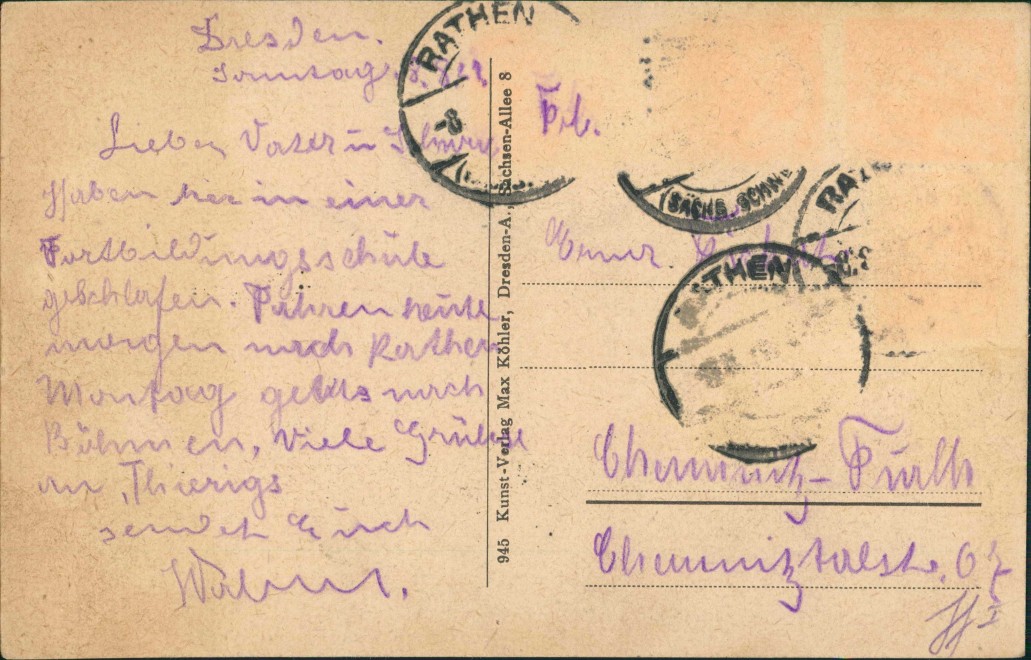 Dresden.
Sonntag
Lieber Vater u
Haben hier in einer
Fortbildungsschule
geschlafen. Fahren heute
morgen nach Rathen
Montag gehts nach
Böhmen, Viele Grüße
an Thierigs
sendet Euch
945 Kunst-Verlag Max Köhler, Dresden-A., Sachsen-Allee 8
RATHEN
-8
(SÄCHS. SCHW
RAT
RATHEN
Chemnitz-Furth
Chemnitztalstr. 67